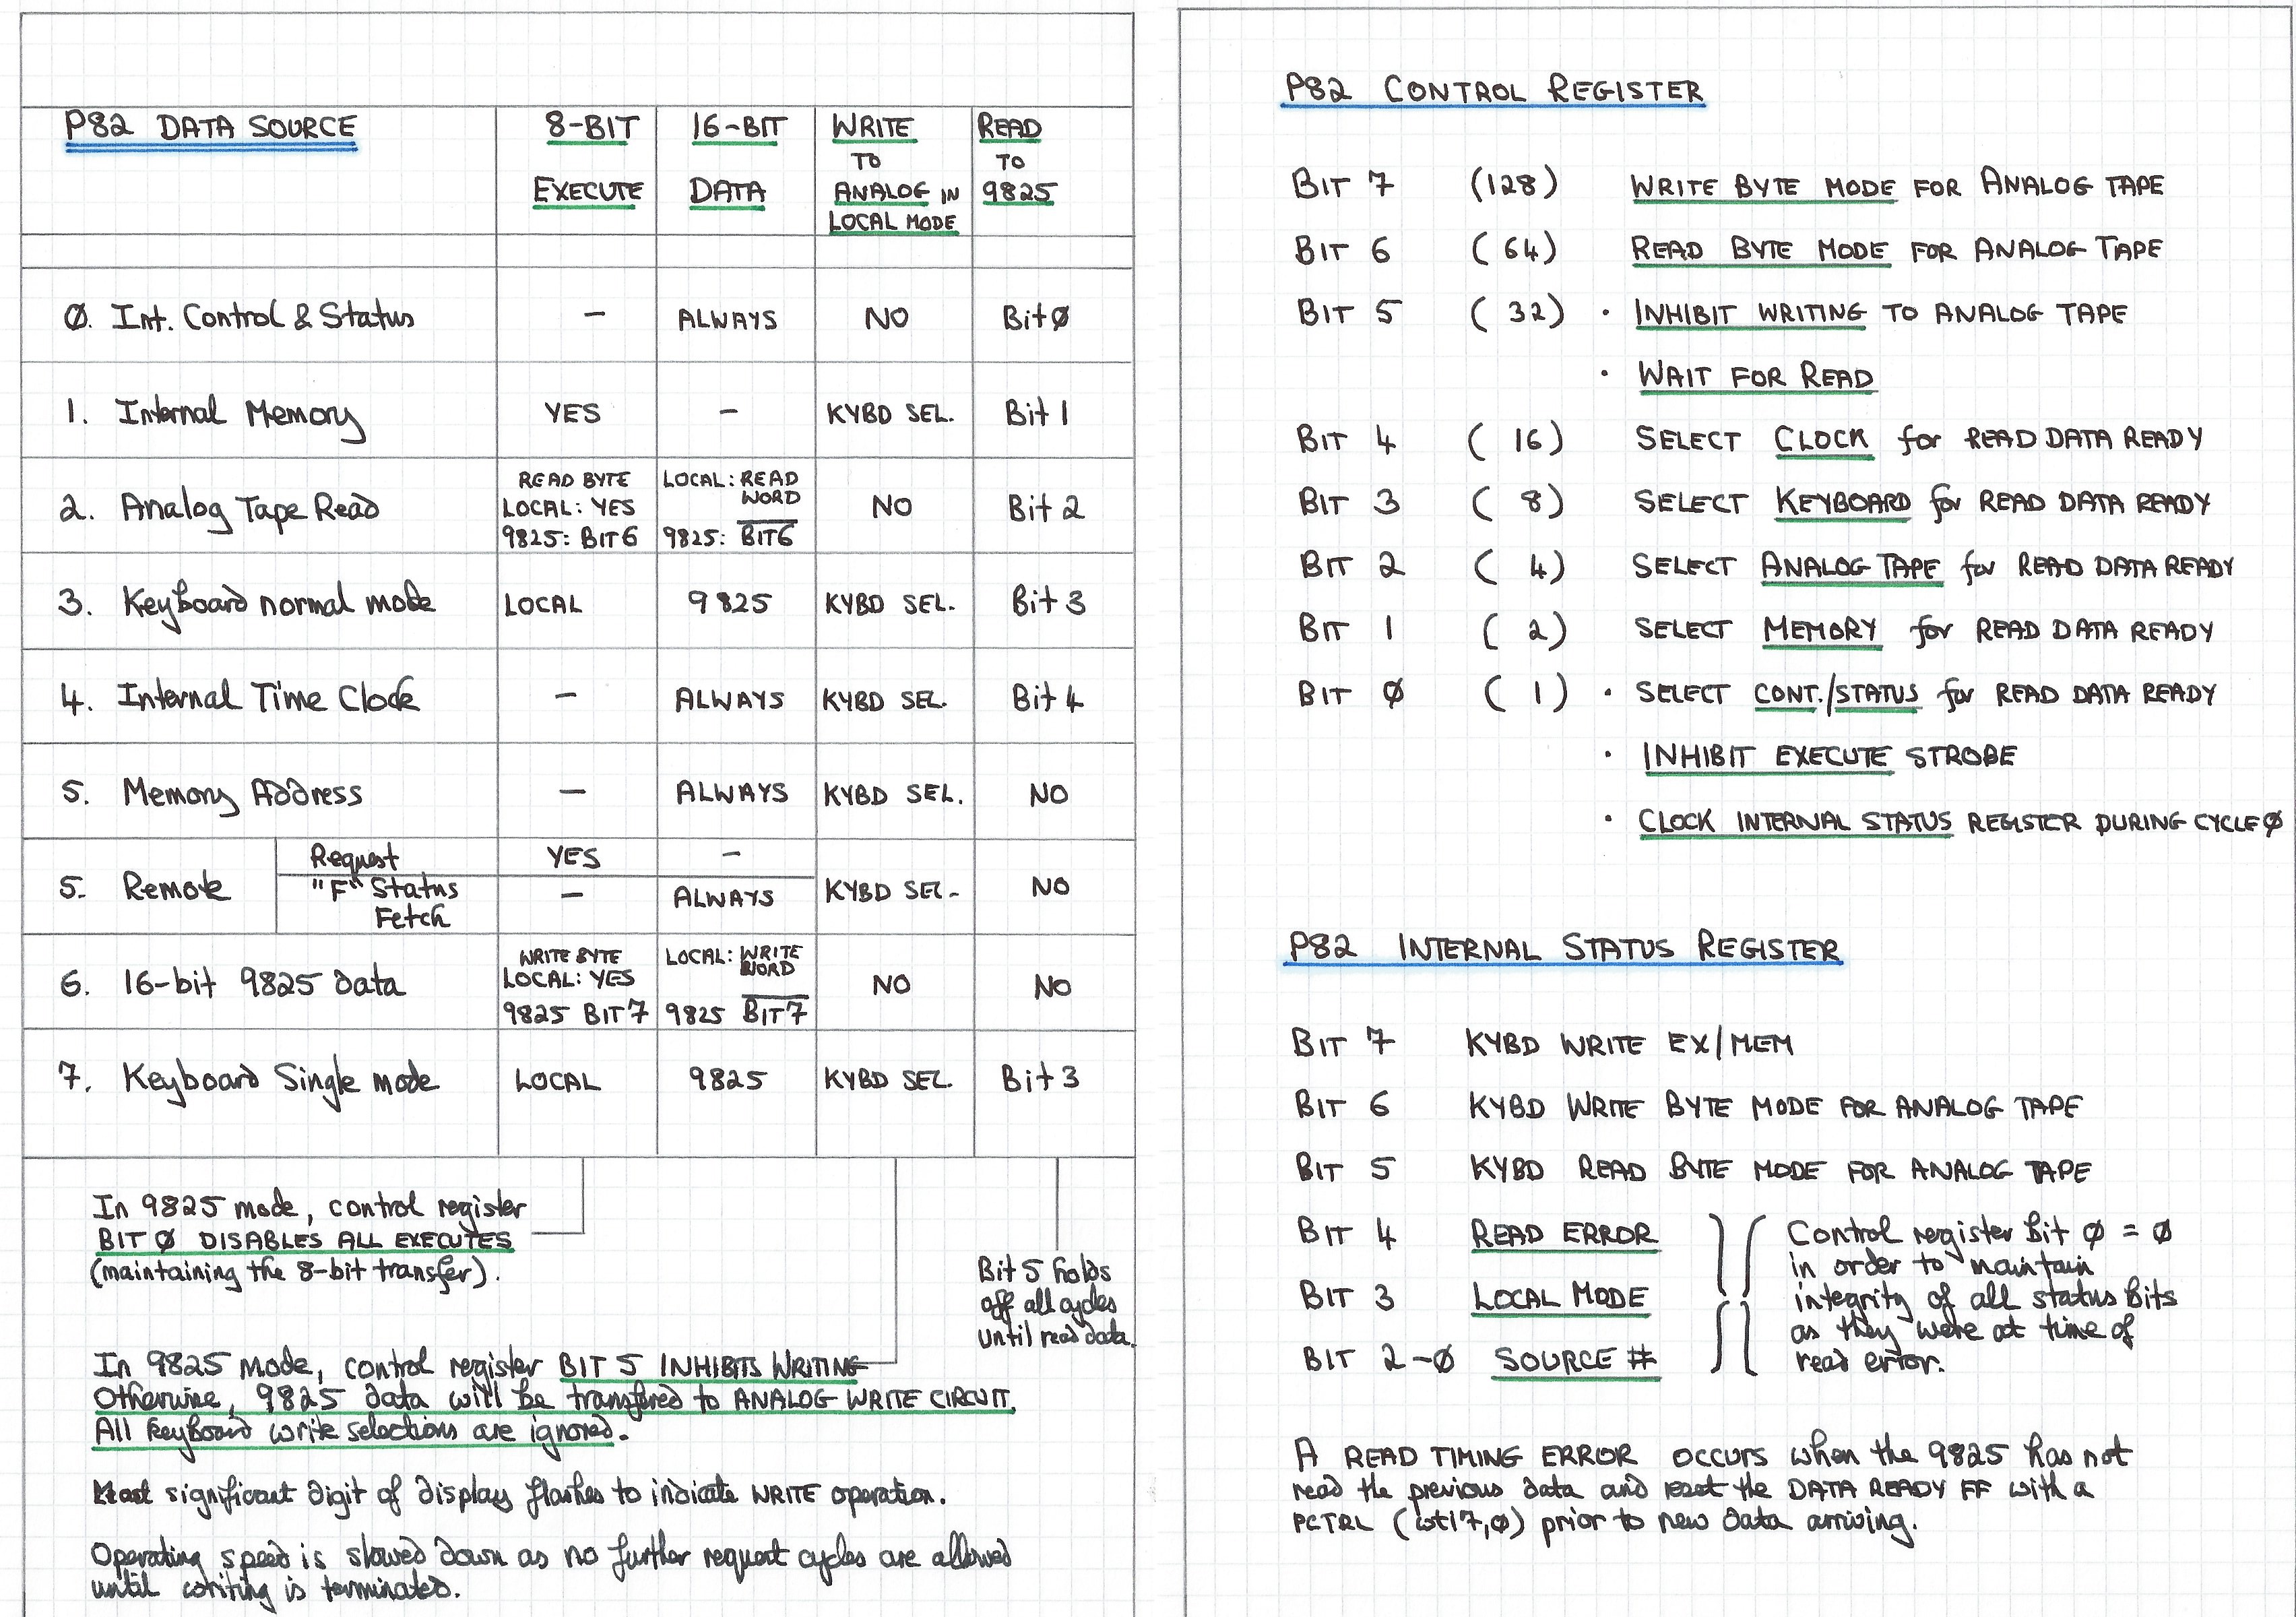 P82 DATA SOURCE
8-BIT EXECUTE
16-BIT DATA
WRITE TO ANALOG IN LOCAL MODE
READ TO 9825
Ø. Int. Control & Status — ALWAYS NO Bit Ø
1. Internal Memory YES — KYBD SEL. Bit 1
2. Analog Tape Read READ BYTE LOCAL: YES 9825: BIT6 LOCAL: READ WORD 9825: B̅I̅T̅6̅ NO Bit 2
3. Keyboard normal mode LOCAL 9825 KYBD SEL. Bit 3
4. Internal Time Clock — ALWAYS KYBD SEL. Bit 4
5. Memory Address — ALWAYS KYBD SEL. NO
5. Remote Request YES — KYBD SEL. NO
"F" Status Fetch — ALWAYS
6. 16-bit 9825 data WRITE BYTE LOCAL: YES 9825 BIT7 LOCAL: WRITE WORD 9825 B̅I̅T̅7̅ NO NO
7. Keyboard Single mode LOCAL 9825 KYBD SEL. Bit 3
In 9825 mode, control register
BIT Ø DISABLES ALL EXECUTES
(maintaining the 8-bit transfer).
Bit 5 holds
off all cycles
until read data.
In 9825 mode, control register BIT 5 INHIBITS WRITING
Otherwise, 9825 data will be transfered to ANALOG WRITE CIRCUIT.
All keyboard write selections are ignored.
Most significant digit of display flashes to indicate WRITE operation.
Operating speed is slowed down as no further request cycles are allowed
until writing is terminated.
P82 CONTROL REGISTER
BIT 7 (128) WRITE BYTE MODE FOR ANALOG TAPE
BIT 6 (64) READ BYTE MODE FOR ANALOG TAPE
BIT 5 (32) · INHIBIT WRITING TO ANALOG TAPE
· WAIT FOR READ
BIT 4 (16) SELECT CLOCK for READ DATA READY
BIT 3 (8) SELECT KEYBOARD for READ DATA READY
BIT 2 (4) SELECT ANALOG TAPE for READ DATA READY
BIT 1 (2) SELECT MEMORY for READ DATA READY
BIT Ø (1) · SELECT CONT./STATUS for READ DATA READY
· INHIBIT EXECUTE STROBE
· CLOCK INTERNAL STATUS REGISTER DURING CYCLE Ø
P82 INTERNAL STATUS REGISTER
BIT 7 KYBD WRITE EX/MEM
BIT 6 KYBD WRITE BYTE MODE FOR ANALOG TAPE
BIT 5 KYBD READ BYTE MODE FOR ANALOG TAPE
BIT 4 READ ERROR
BIT 3 LOCAL MODE
BIT 2-Ø SOURCE #
Control register Bit Ø = Ø
in order to maintain
integrity of all status Bits
as they were at time of
read error.
A READ TIMING ERROR OCCURS when the 9825 has not
read the previous data and reset the DATA READY FF with a
PCTRL (wti7,Ø) prior to new data arriving.